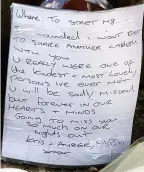 WHERE TO START M8...
I'M wounded I WONT GET
TO SHARE ANOTHER
WITH YOU
U REALLY WERE ONE OF
the kindest + MOST LOVELY
PERSONS I'VE EVER MET
U will BE SADLY MISSED
but forever IN OUR
HEARTS + MINDS
GOING TO MISS YOU
SO MUCH ON OUR
NIGHTS OUT
KRIS + AMBER,